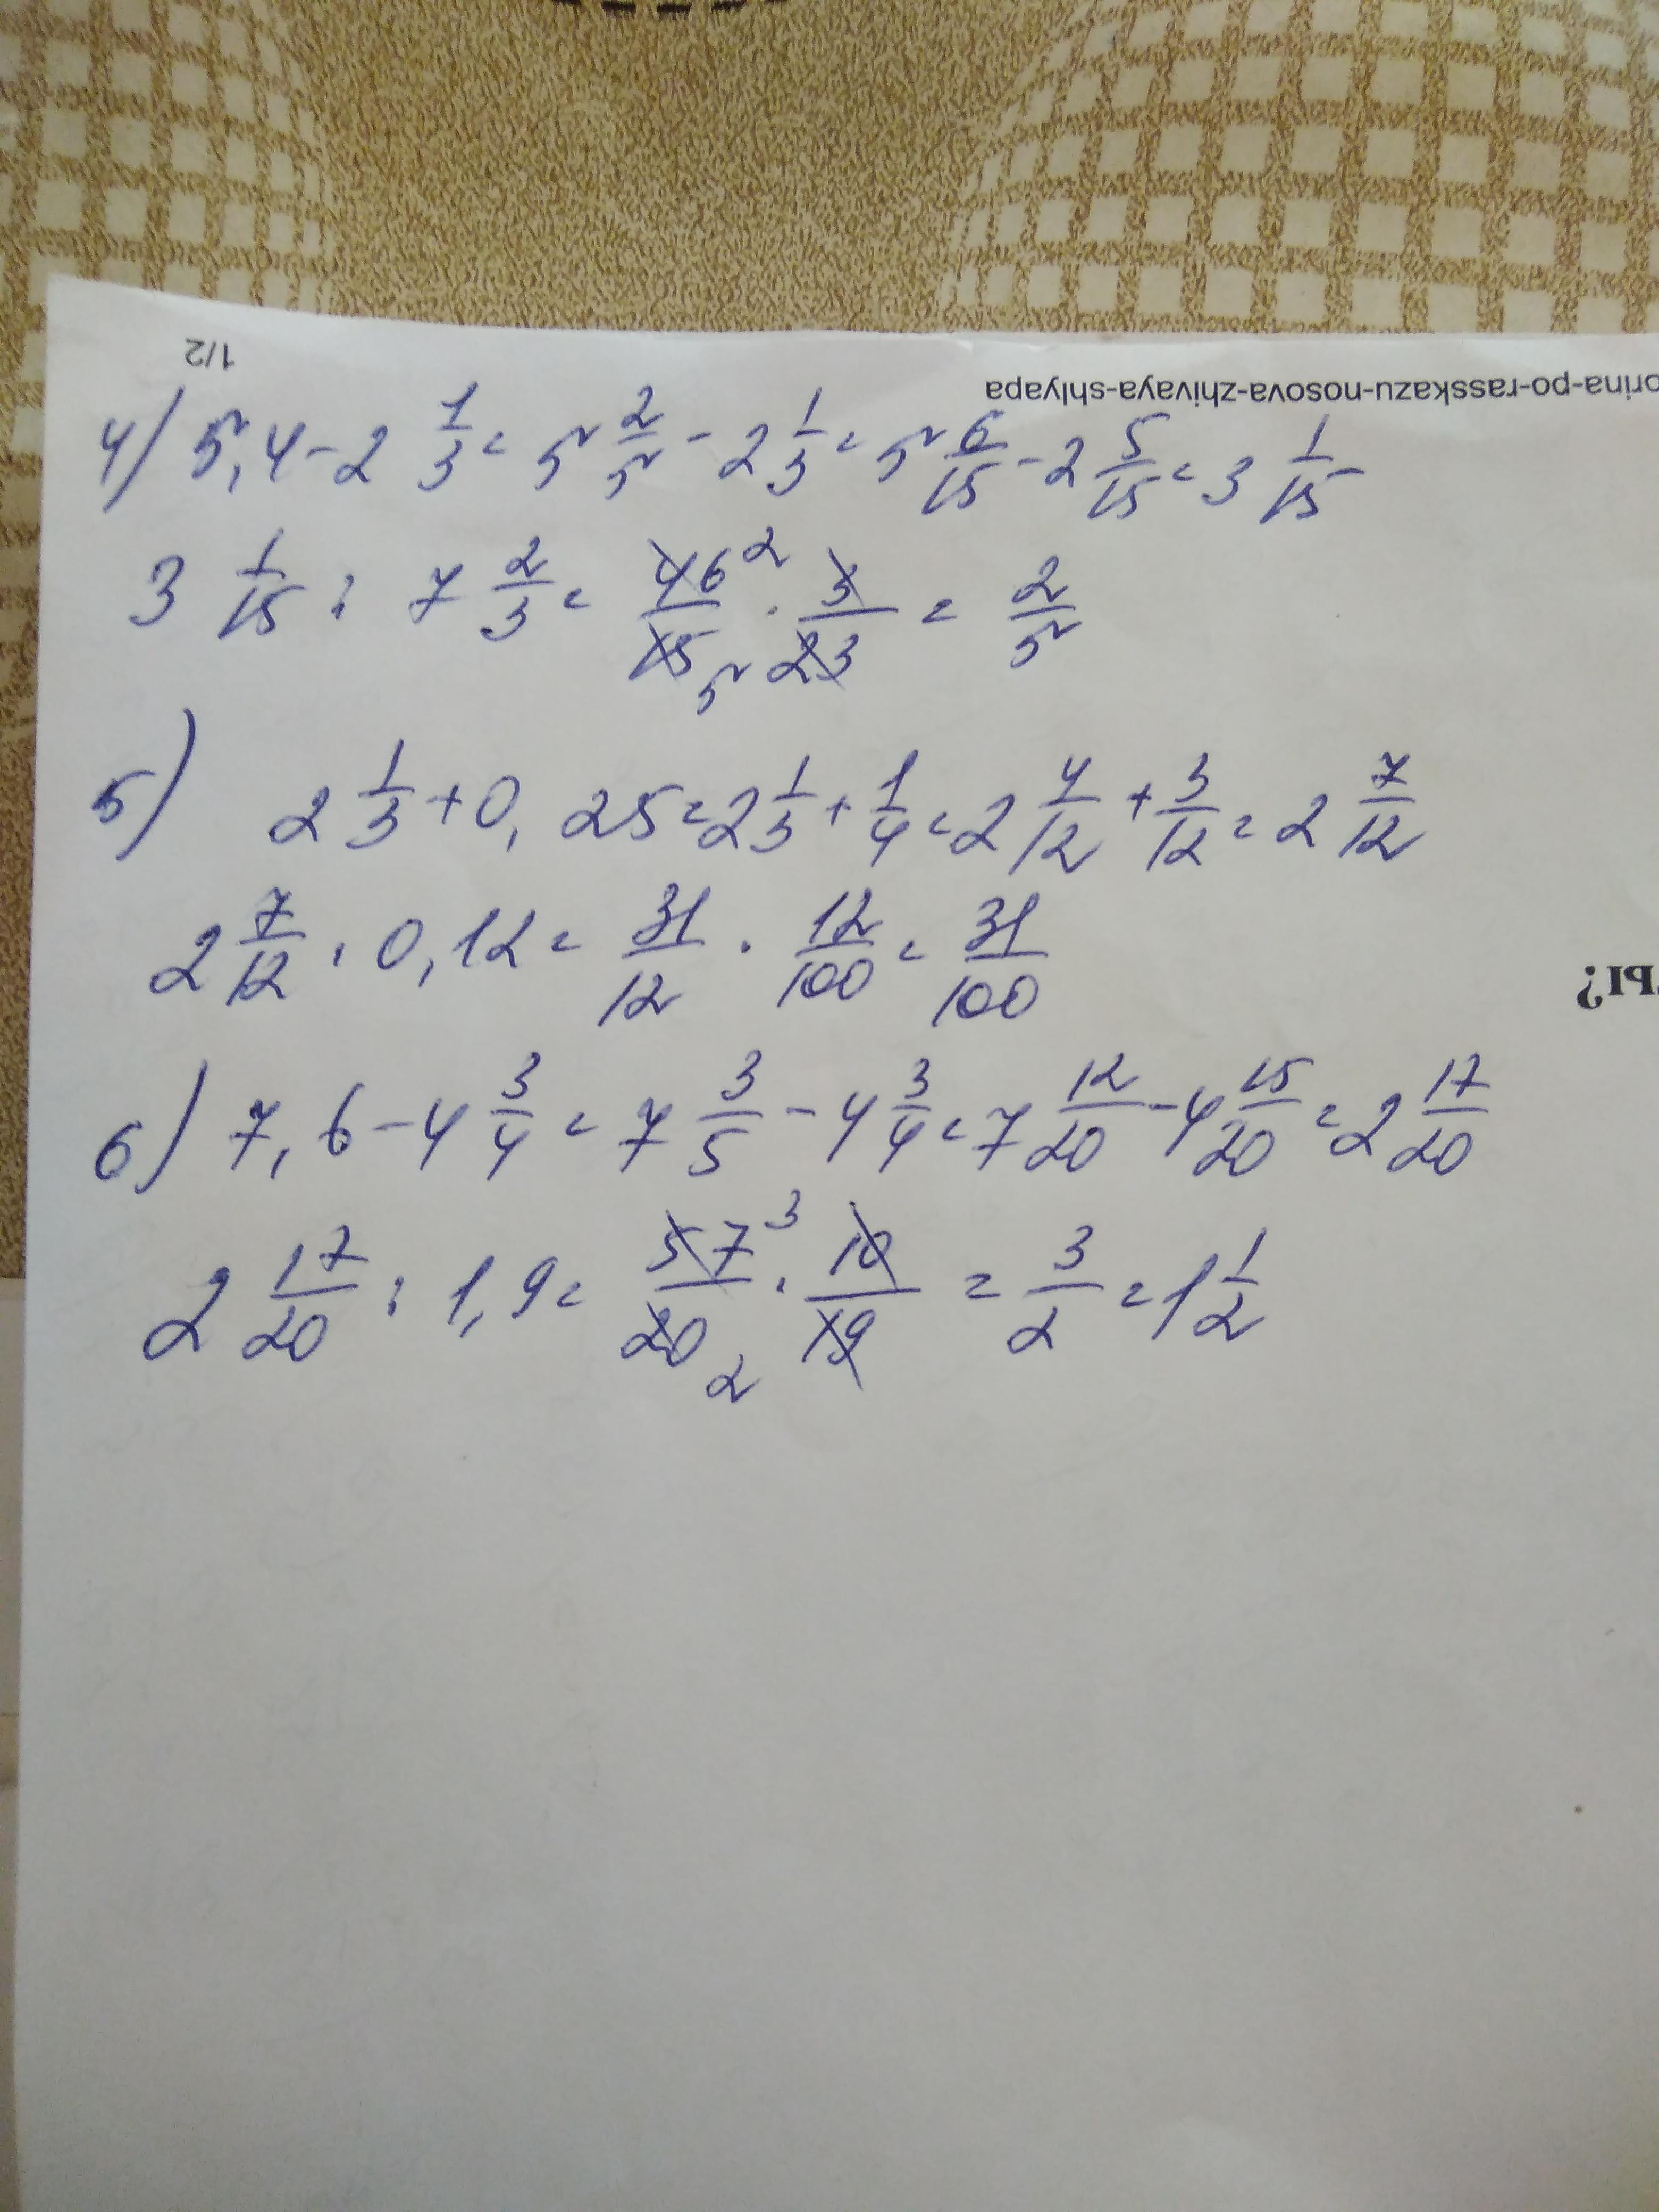 1/2
orina-po-rasskazu-nosova-zhivaya-shlyapa
4) 5,4 - 2 1/3 = 5 2/5 - 2 1/3 = 5 6/15 - 2 5/15 = 3 1/15
3 1/15 : 7 2/3 = 46/15 · 3/23 = 2/5
2
5
5) 2 1/3 + 0,25 = 2 1/3 + 1/4 = 2 4/12 + 3/12 = 2 7/12
2 7/12 · 0,12 = 31/12 · 12/100 = 31/100
6) 7,6 - 4 3/4 = 7 3/5 - 4 3/4 = 7 12/20 - 4 15/20 = 2 17/20
2 17/20 : 1,9 = 57/20 · 10/19 = 3/2 = 1 1/2
3
2